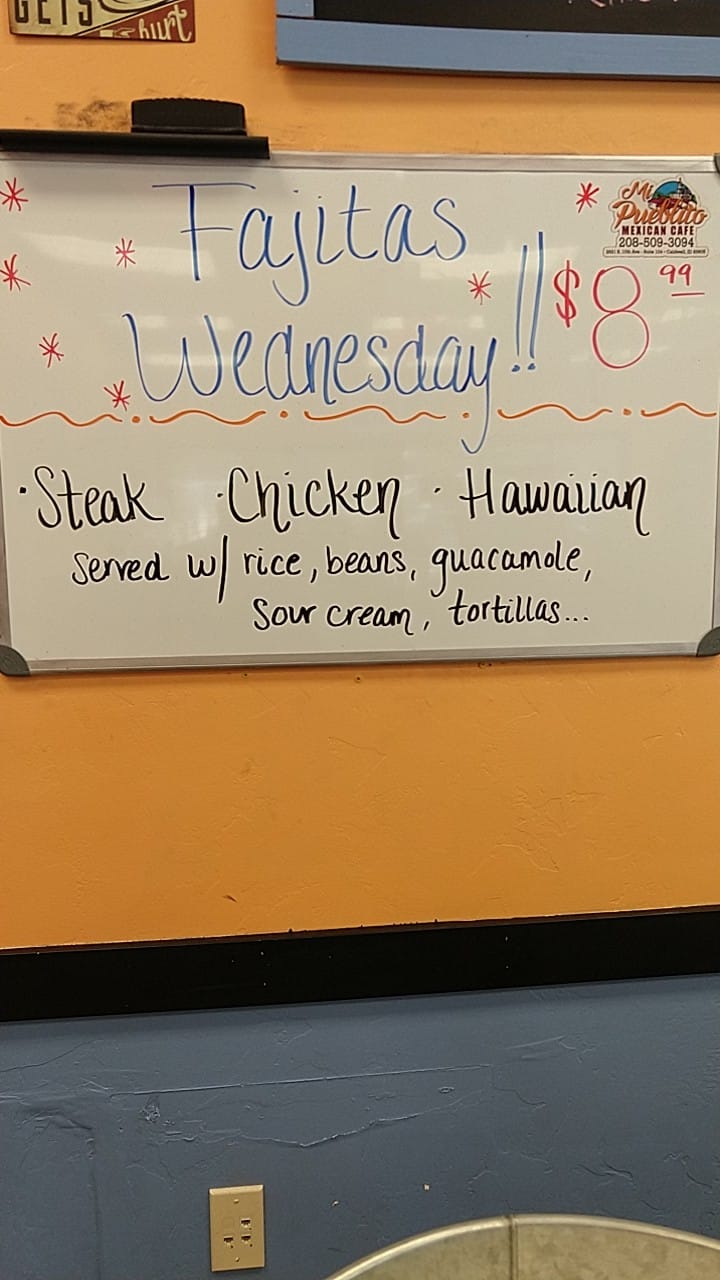 GETS
hurt
Fajitas
Wednesday!!
$8.99
Mi
Pueblito
MEXICAN CAFE
208-509-3094
·Steak ·Chicken ·Hawaiian
served w/ rice, beans, guacamole,
sour cream, tortillas...